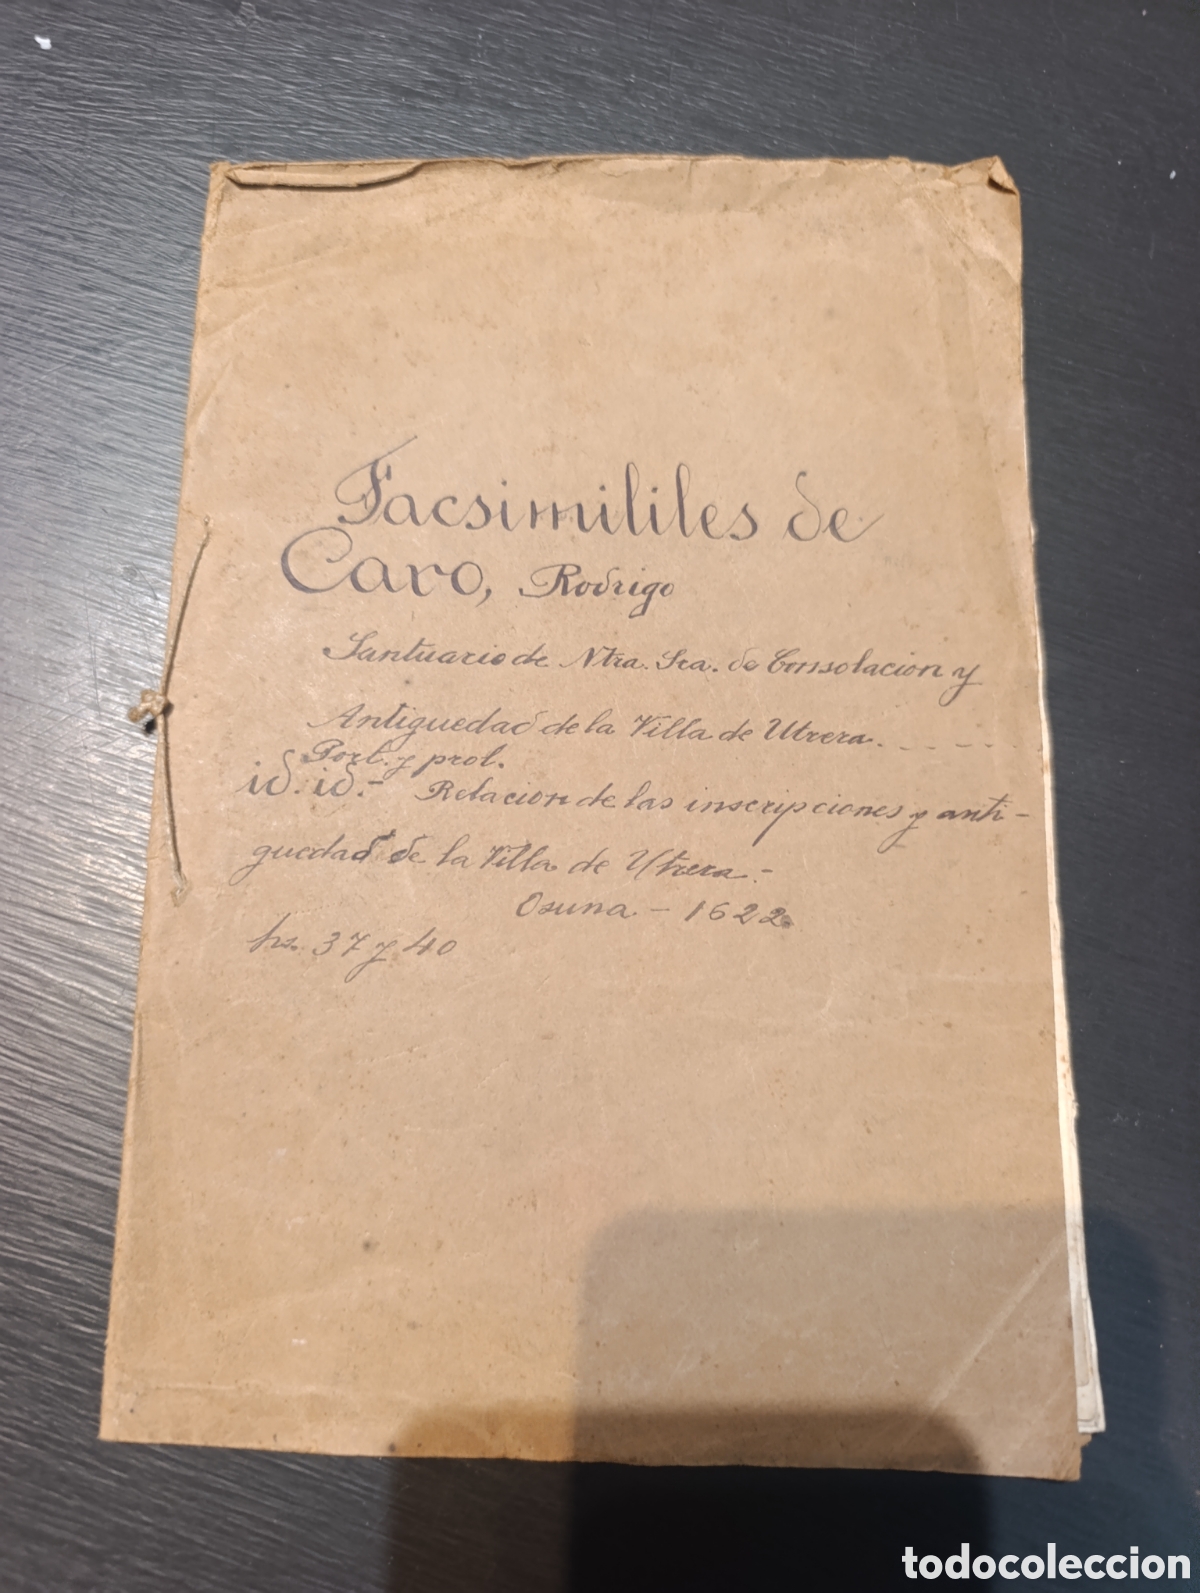 Facsimililes de
Caro, Rodrigo
Santuario de Ntra. Sra. de Consolacion y
Antiguedad de la Villa de Utrera. - - - - -
Port. y prol.
id. id.- Relacion de las inscripciones y anti-
guedad de la Villa de Utrera.-
Osuna - 1622.
hs. 37 y 40
todocoleccion